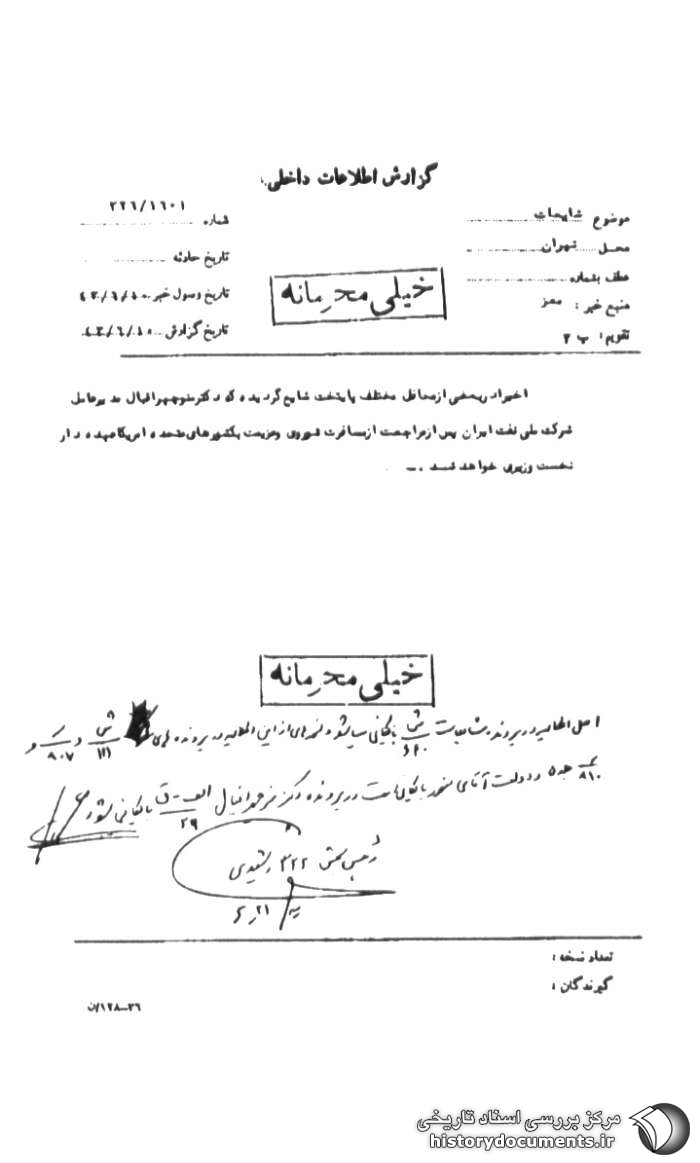 گزارش اطلاعات داخلی
موضوع شایعات
محل تهران
عطف بشماره
منبع خبر :
تقویم: ب ۲
شماره ۳۲۶/۱۶۰۱
تاریخ حادثه
تاریخ وصول خبر
تاریخ گزارش
خیلی محرمانه
اخیرا در بعضی از محافل مختلف پایتخت شایع گردیده که دکتر منوچهر اقبال مدیرعامل
شرکت ملی نفت ایران پس از مراجعت از مسافرت شوروی و عزیمت بکشورهای متحده امریکا عهده دار
نخست وزیری خواهد شد .ــ
خیلی محرمانه
اصل اطلاعیه در پرونده شایعات ش ۶۴۰ بایگانی میشود از این اطلاعیه در پرونده های ش ۱۱۱ و ۸۰۷ و
۸۱۰ دولت آقای بایگانی است در پرونده دکتر منوچهر اقبال الف - ق ۲۹ بایگانی شود
رئیس بخش ۳۲۲ رشیدی
۶٫۲۱
تعداد نسخه :
گیرندگان :
۳۶ــ۱۲۸/ن
مرکز بررسی اسناد تاریخی
historydocuments.ir